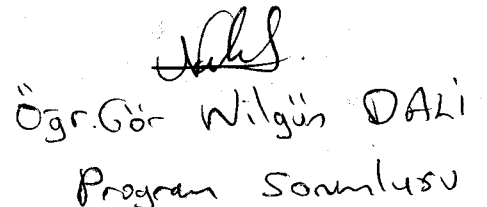 Öğr.Gör Nilgün DALİ
Program Sorumlusu